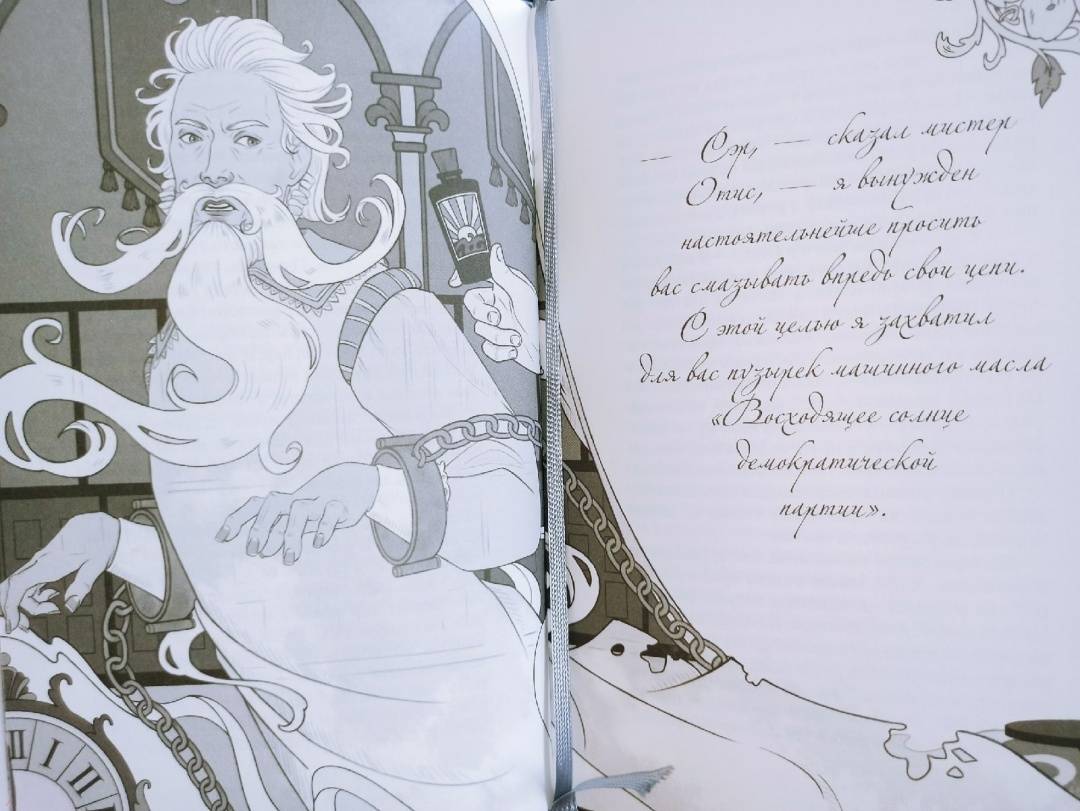 — Сэр, — сказал мистер
Отис, — я вынужден
настоятельнейше просить
вас смазывать впредь свои цепи.
С этой целью я захватил
для вас пузырек машинного масла
«Восходящее солнце
демократической
партии».
I II